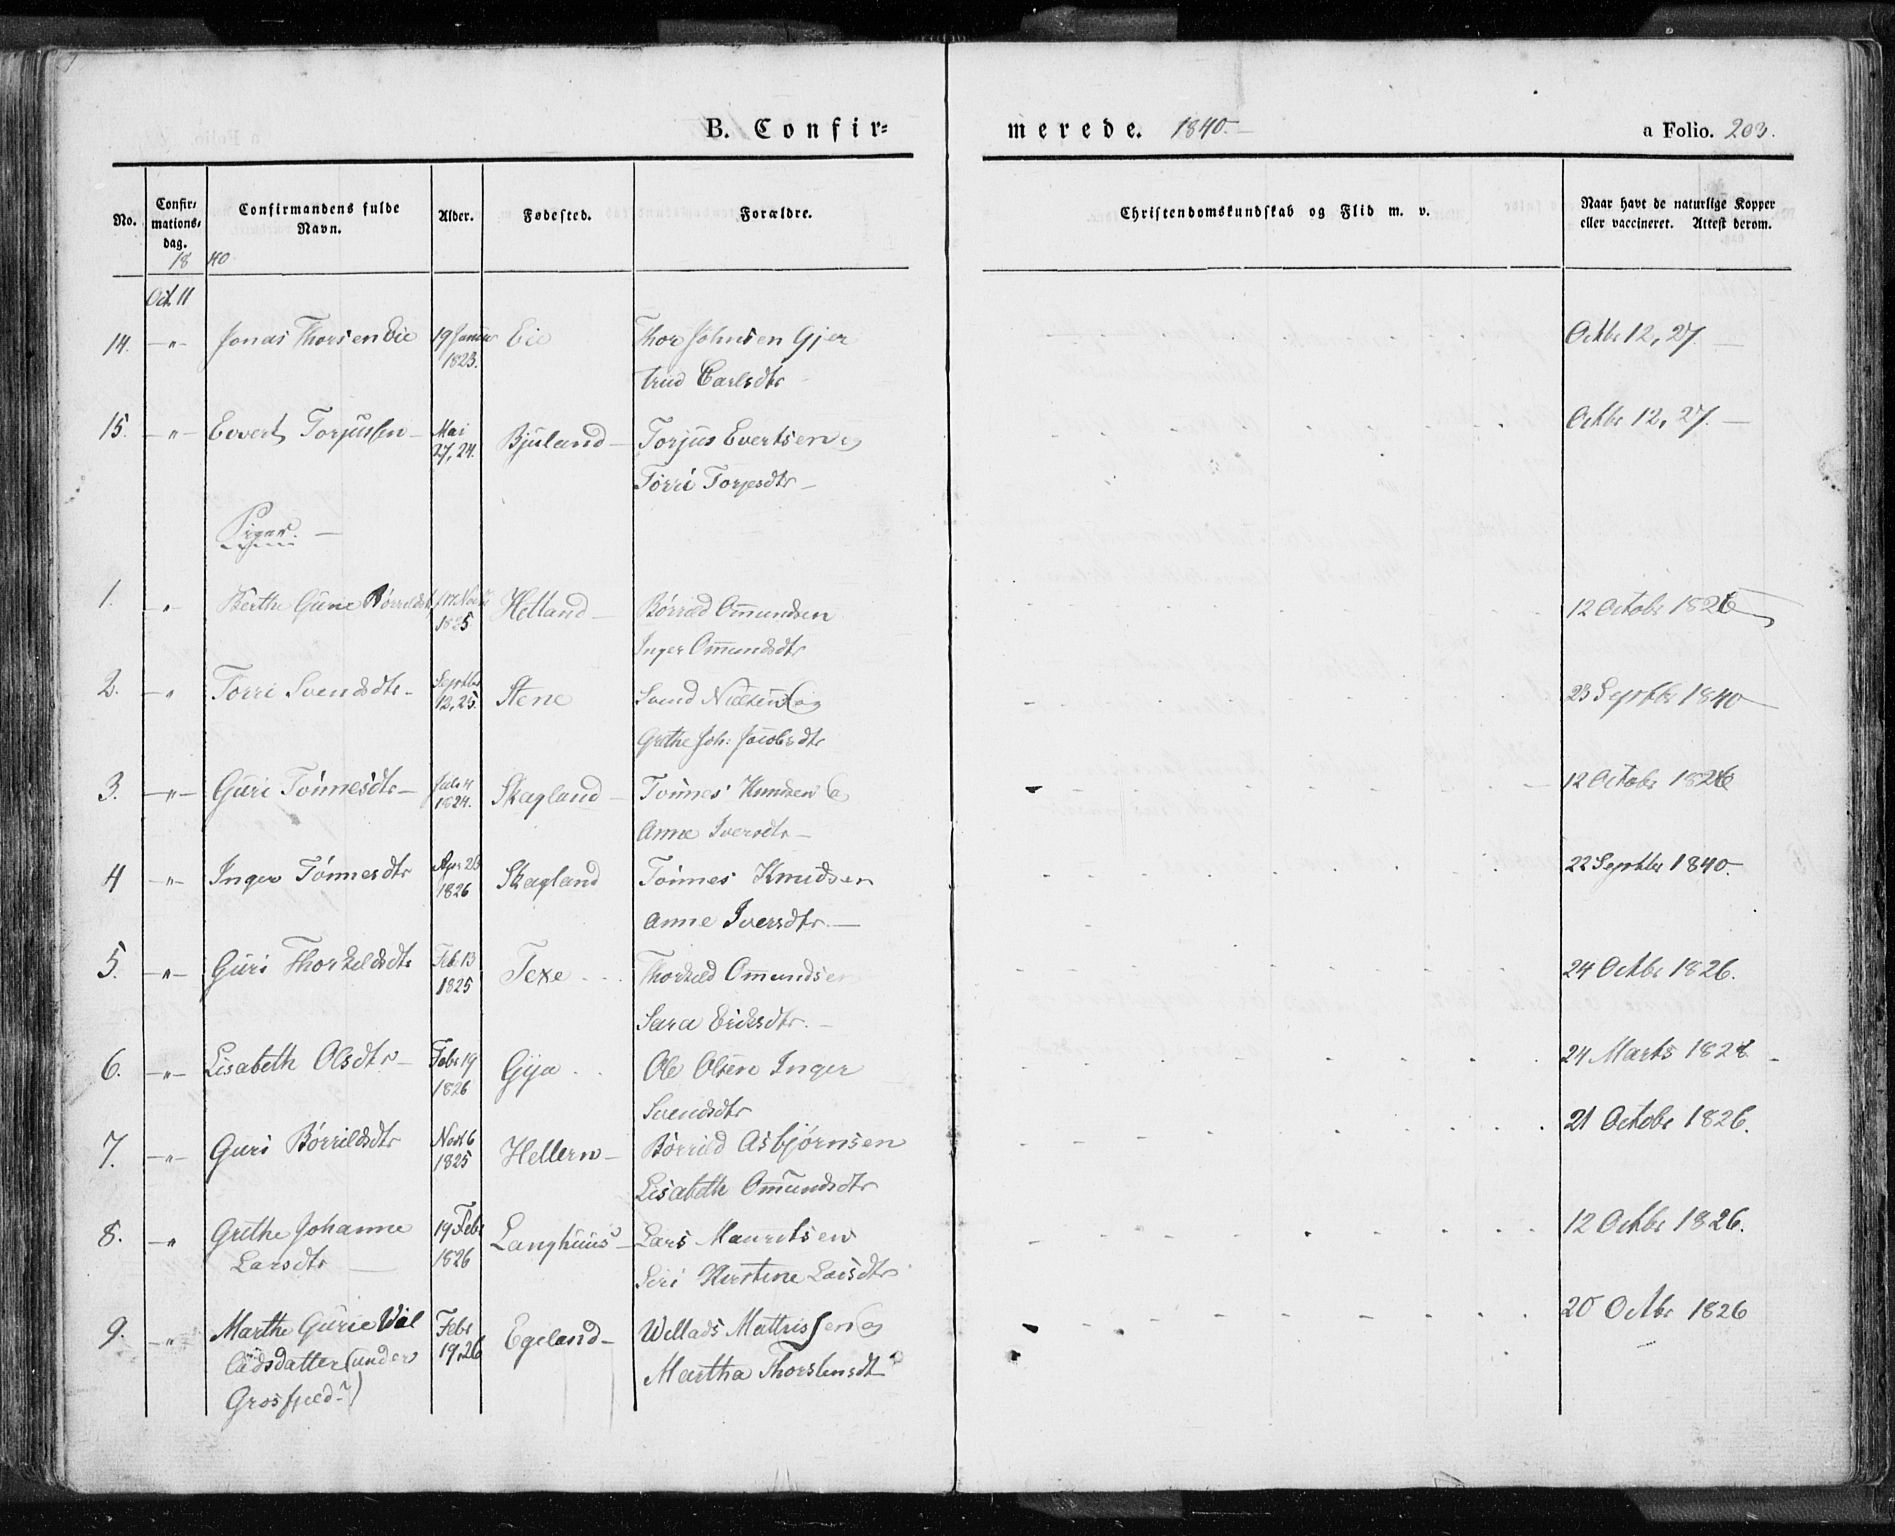 B. Confir=
merede. 1840.
a Folio. 203.
No.
Confir=
mations=
dag.
Confirmandens fulde
Navn.
Alder.
Fødested.
Forældre.
Christendomskundskab og Flid m. v.
Naar havt de naturlige Kopper
eller vaccineret. Attest derom.
18 40
Oct. 11
14. -"- Jonas Thorsen Eie 19 Januar Eie Thor Johnsen Gjer Octbr 12, 27. -
1823. trud Carlsdtr
15. -"- Evert Torjussen Mai Bjuland - Torjus Evertsen og Octbr 12, 27. -
27, 24. Torri Torjesdtr -
Piger. -
1. " Berthe Gurie Børrildsdtr 1825 Helland - Børrild Omundsen 12 Octobr 1826
Inger Omundsdtr
2. - " Torri Svendsdtr - Septbr Stene Svend Nielsen og 23 Septbr 1840
12, 25. Grethe Joh: Jacobsdtr
3. -"- Guri Tönnesdtr - 1824. Skagland - Tönnes Knudsen og 12 Octobr 1826
Anne Iversdtr -
4 -"- Inger Tönnesdtr Apr 26 Skagland Tönnes Knudsen 22 Septbr 1840.
1826 Anne Iversdtr. -
5. -"- Guri Thorkeldsdtr Feb. 13 Texe Thorkild Omundsen 24 Octbr 1826.
1825 Sara Eriksdtr. -
6. -"- Lisabeth Olsdtr - Febr 19 Gya Ole Olsen Inger 24 Marts
1826 Svendsdtr
7. -"- Guri Börrildsdtr Novb 6 Hellern - Börrild Asbjørnsen 21 Octobr 1826.
1825 Lisabeth Omundsdtr
8. -" Grethe Johanne 19 Febr Langhuus - Lars Mauritsen 12 Octbr 1826.
Larsdtr 1826 Siri Kirstine Larsdtr
9. -" Marthe Gurie Wal Febr Egeland - Wellads Mathissen og 20 Octbr 1826
ladsdatter (under 19, 26 Martha Thorstensdtr
Grosfjeld?)